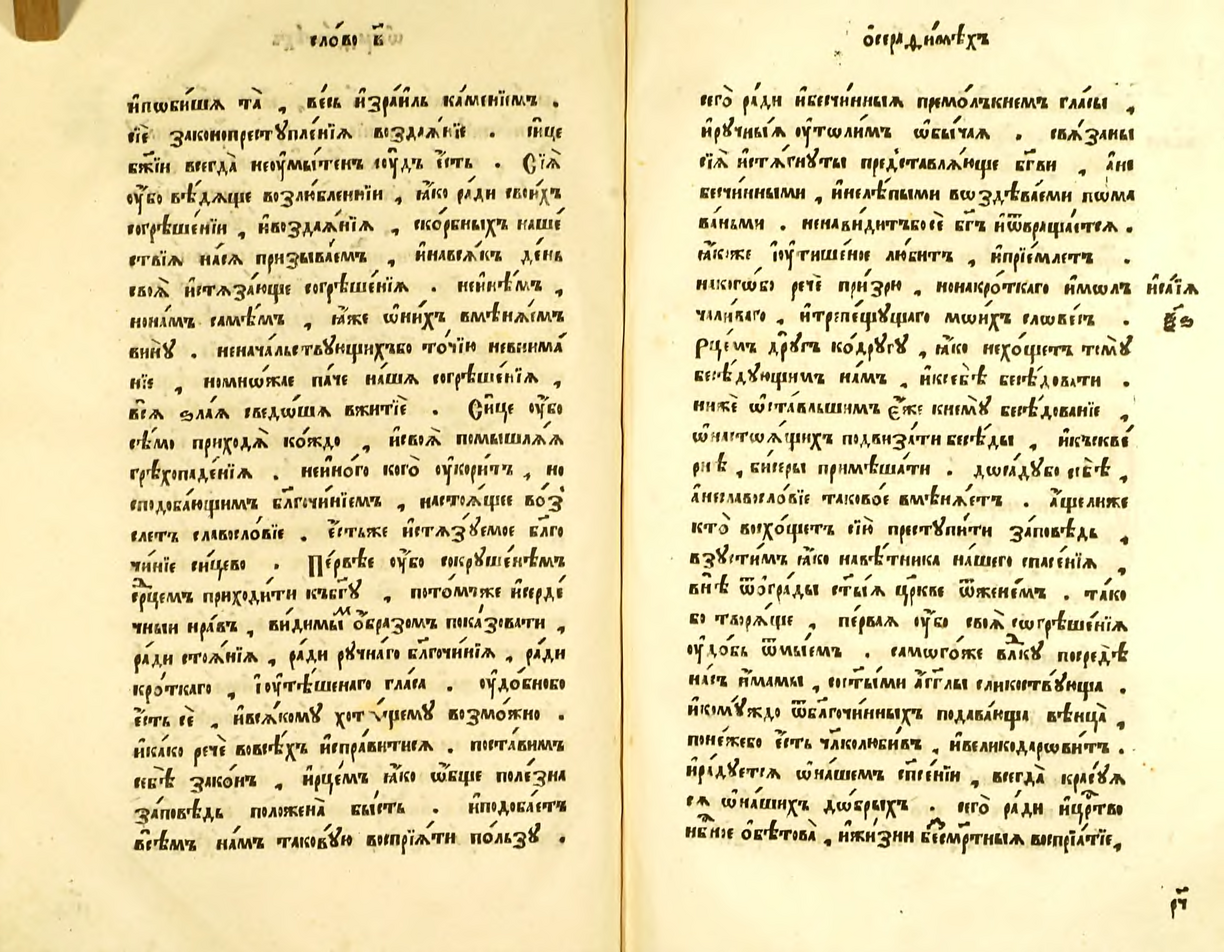 сло́во в҃
и҆пѡбиша та̀ , ве́сь и҆зра́иль ка́менїемъ .
сїѐ законопрестꙋпле́нїѧ воздаѧ́нїе . си́це
бж҃їи всегда̀ неꙋ҆мы́тенъ сꙋ́дъ е҆́сть . Сїѧ̀
ᲂу҆́бо вѣ́дѧще возлю́бленнїи , ꙗ҆́ко ра́ди свои́хъ
согрѣше́нїи , и҆воздаѧ́нїѧ , ско́рбныхъ наше́
ствїѧ насѧ̀ призыва́емъ , и҆навсѧ́къ де́нь
своѧ̀ и҆стѧза́юще согрѣше́нїѧ . неи҆нѣ́мъ ,
нона́мъ самѣ́мъ , ꙗ҆́же ѡ҆ни́хъ вмѣнѧ́емъ
винꙋ̀ . неначальствꙋющихъбо то́чїю невнима́
нїе , номно́жае па́че на́шѧ согрѣше́нїѧ ,
всѧ̀ ѕла́ѧ сведо́шѧ вжитїѐ . Си́це ᲂу҆́бо
сѣ́мо приходѧ̀ ко́ждо , и҆своѧ̀ помышлѧ́ѧ
грѣхопаде́нїѧ . неи҆но́го кого̀ ᲂу҆кори́тъ , но
сподоба́ющимъ бл҃гочи́нїемъ , настоѧ́щее во́з
слетъ славосло́вїе . е҆́стьже и҆стѧзꙋ́емое бл҃го
чи́нїе си́цево . Пе́рвѣе ᲂу҆́бо сокрꙋше́нѣмъ
срⷣцемъ приходи́ти къбг҃ꙋ , пото́мъже и҆серде́
чныи нра́въ , ви́димыⷨ о҆́бразомъ пока́зовати ,
ра́ди стоѧ́нїѧ , ра́ди рꙋ́чнаго бл҃гочи́нїѧ , ра́ди
кро́ткаго , і҆ᲂу҆тѣ́шенаго гла́са . ᲂу҆до́бнобо
е҆́сть сѐ , и҆всѧ́комꙋ хотѧ́щемꙋ возмо́жно .
и҆ка́ко речѐ вовсѣ́хъ и҆спра́витисѧ . поста́вимъ
себѣ̀ зако́нъ , и҆рце́мъ ꙗ҆́ко ѻ҆́бще поле́зна
за́повѣдь положена̀ бы́сть . и҆подоба́етъ
всѣ́мъ на́мъ такову́ю воспрїѧ́ти по́льзꙋ .
о҆серади́мѣхъ
сего̀ ра́ди и҆бесчи́нныѧ премо́лъкнемъ гла́сы ,
и҆рꙋчны́ѧ ᲂу҆то́лимъ ѻ҆бы́чаѧ . свѧ́заны
сїѧ̀ и҆стѧ́гнꙋты представлѧ́юще бг҃ви , а҆не
бесчи́нными , и҆нелѣ́пыми воздѣва́еми пома
ва́ньми . ненави́дитъбосѐ бг҃ъ и҆ѿвраща́етсѧ .
ꙗ҆́коже і҆ᲂу҆ти́шеное лю́битъ , и҆прїе́млетъ .
накого̀бо речѐ призрю̀ , нонакро́ткаго и҆мол
чали́ваго , и҆трепе́щꙋщаго мои́хъ слове́съ .
и҆са́їѧ
ѯ҃ѕ
Рце́мъ дрꙋ́гъ ко́дрꙋгꙋ , ꙗ҆́ко нехо́щетъ томꙋ̀
бесѣ́дꙋющимъ на́мъ , и҆ксебѣ̀ бесѣ́довати .
нижѐ ѡ҆ста́вльшимъ є҆́же кнемꙋ̀ бесѣ́дованїе ,
ѡ҆настоѧ́щихъ подвиза́ти бесѣ́ды , и҆къскве́
рнѣ , би́серы примѣша́ти . доса́дꙋбо себѣ̀ ,
а҆неславосло́вїе таково́е вмѣнѧ́етъ . а҆́щелиже
кто̀ восхо́щетъ сїю̀ престꙋпи́ти за́повѣдь ,
взꙋ́стимъ ꙗ҆́ко навѣ́тника на́шего спасе́нїѧ ,
внѣ̀ ѿѡгра́ды ст҃ы́ѧ цр҃кве ѿжене́мъ . та́ко
бо творѧ́ще , пе́рваѧ ᲂу҆́бо своѧ̀ согрѣше́нїѧ
ᲂу҆до́бь ѿмы́емъ . самого́же влⷣкꙋ посредѣ̀
на́съ и҆́мамы , сост҃ы́ми а҆́гг҃лы ликоствꙋ́юща .
и҆комꙋ́ждо ѿбл҃гочи́нныхъ подава́юща вѣнца̀ ,
поне́жебо е҆́сть чл҃колюби́въ , и҆великодарови́тъ .
и҆ра́дꙋетсѧ ѡ҆на́шемъ сп҃се́нїи , всегда̀ красꙋ́ѧ
сѧ ѡ҆на́шихъ до́брыхъ . сего̀ ра́ди и҆црⷭ҇тво
нбⷭ҇ное ѻ҆бѣтова̀ , и҆жи́зни бесме́ртныѧ воспрїѧ́тїе ,
рч҃